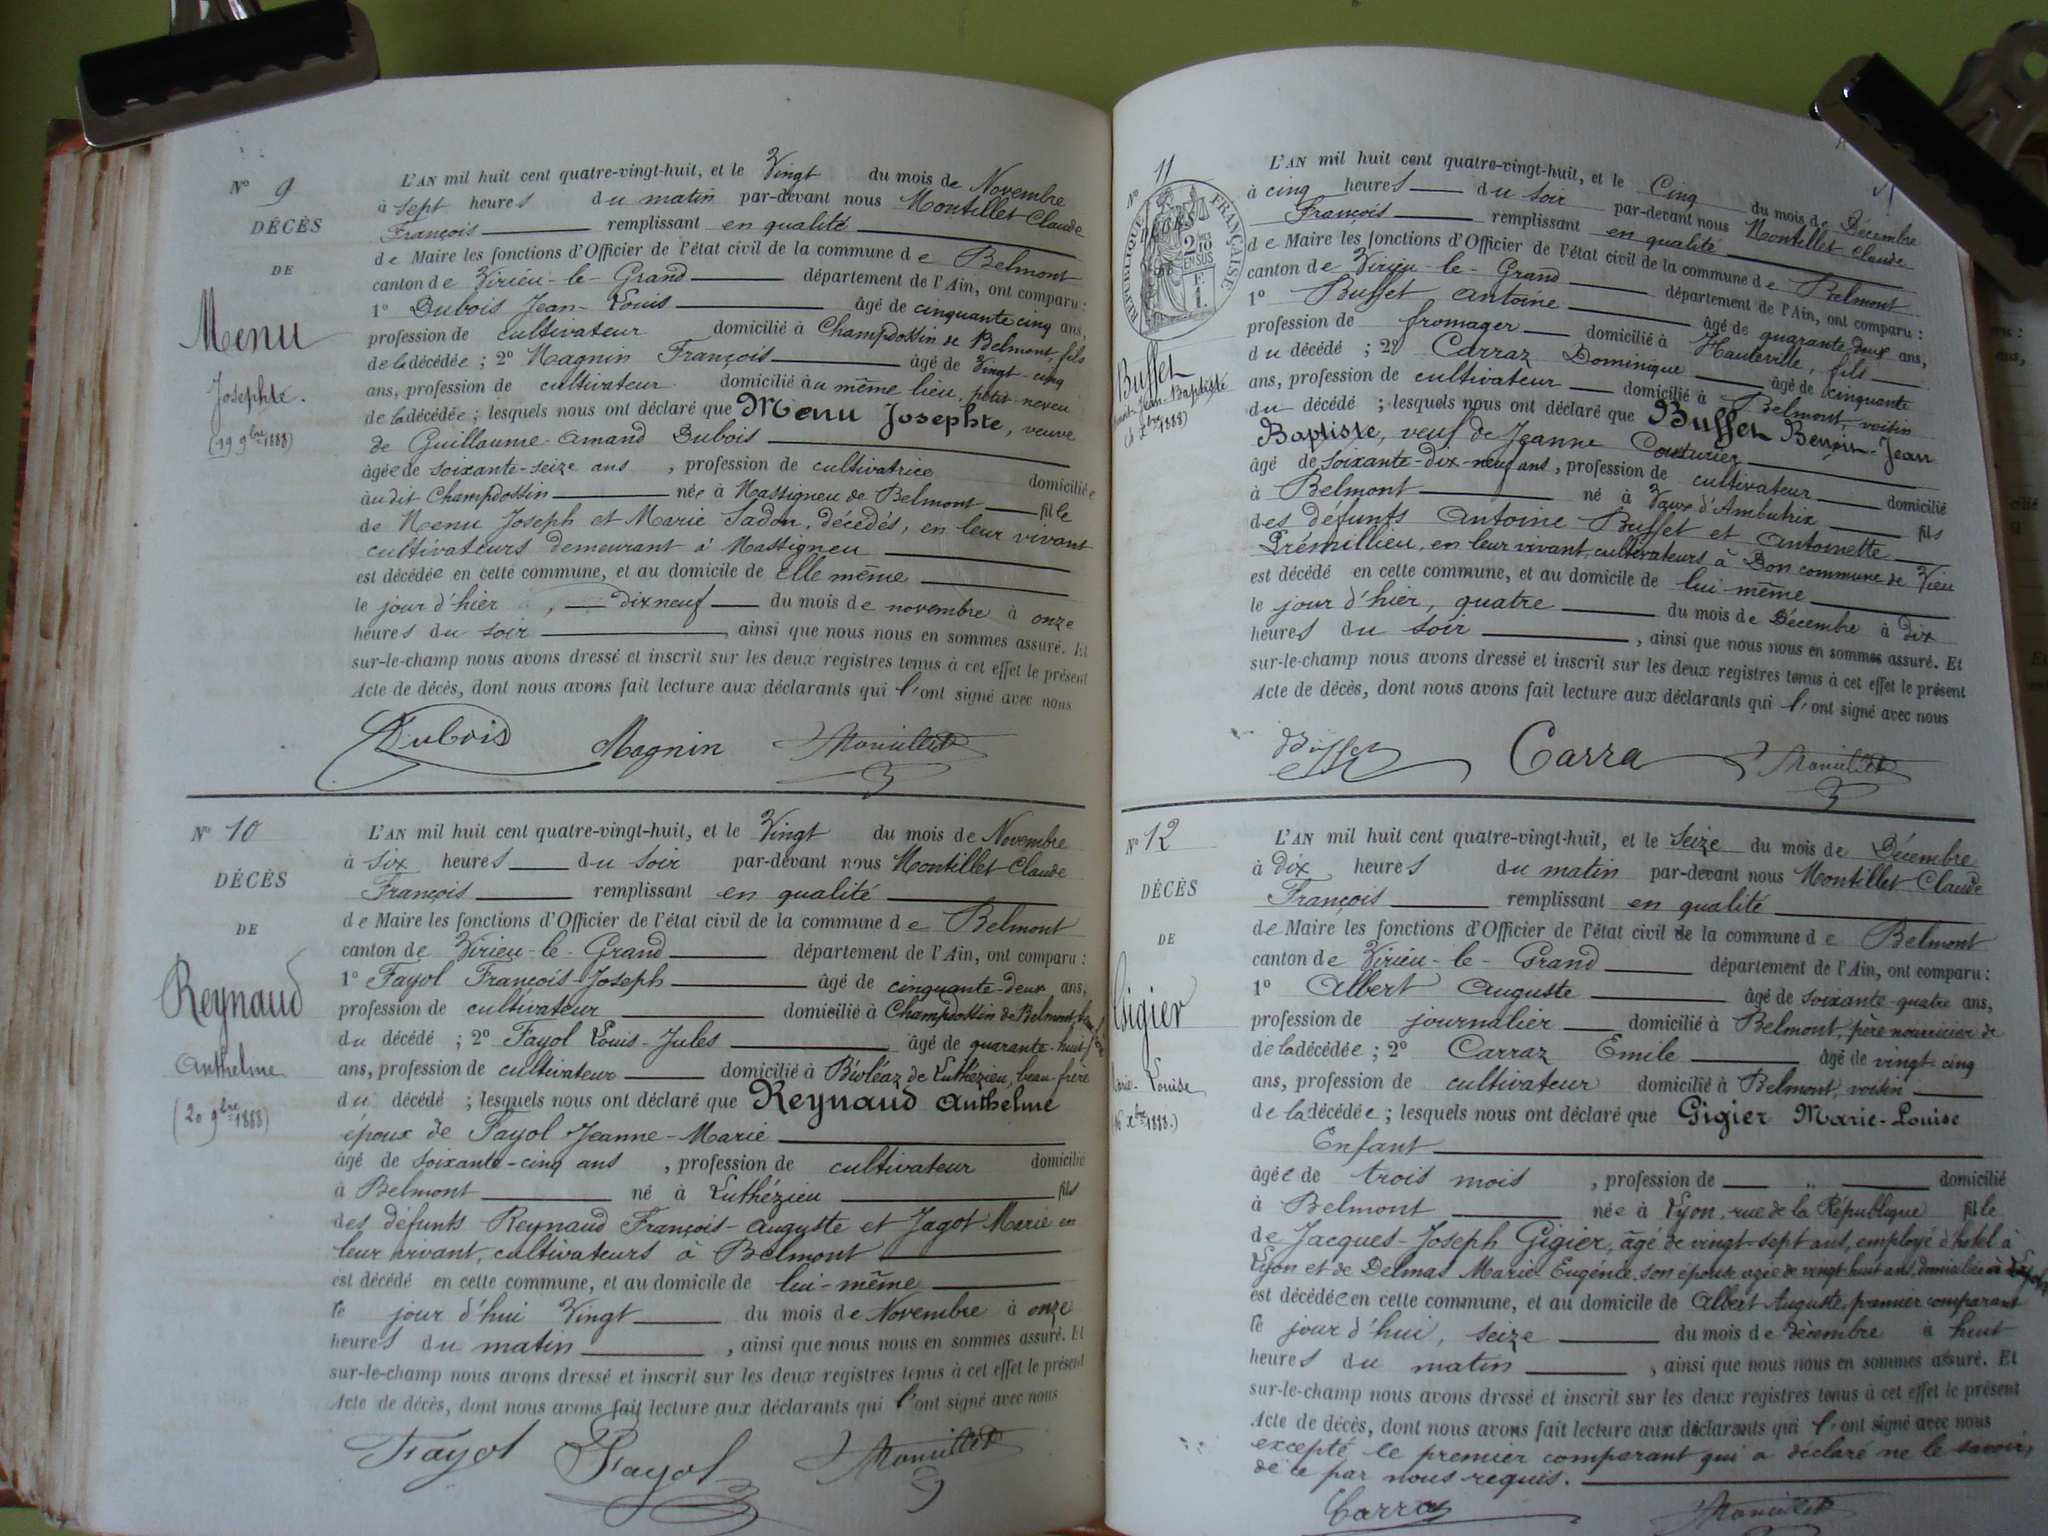 N° 9
DÉCÈS
DE
Menu
Josephte.
(19 9bre 1888)
L'AN mil huit cent quatre-vingt-huit, et le Vingt du mois de Novembre
à sept heures du matin par-devant nous Montillet Claude
François remplissant en qualité
de Maire les fonctions d'Officier de l'état civil de la commune de Belmont
canton de Virieu-le-Grand département de l'Ain, ont comparu :
1° Dubois Jean-Louis âgé de cinquante cinq ans,
profession de cultivateur domicilié à Champdossin de Belmont, fils
de la décédée ; 2° Magnin François âgé de Vingt-cinq
ans, profession de cultivateur domicilié au même lieu, petit-neveu
de la décédée ; lesquels nous ont déclaré que Menu Josephte, veuve
de Guillaume-Amand Dubois
âgée de soixante-seize ans , profession de cultivatrice domiciliée
audit Champdossin née à Massigneu de Belmont fille
de Menu Joseph et Marie Jadon, décédés, en leur vivant
cultivateurs demeurant à Massigneu
est décédée en cette commune, et au domicile de elle même
le jour d'hier , dix neuf du mois de novembre à onze
heures du soir , ainsi que nous nous en sommes assuré. Et
sur-le-champ nous avons dressé et inscrit sur les deux registres tenus à cet effet le présent
Acte de décès, dont nous avons fait lecture aux déclarants qui l'ont signé avec nous
Dubois Magnin Montillet
N° 10
DÉCÈS
DE
Reynaud
Anthelme
(20 9bre 1888)
L'AN mil huit cent quatre-vingt-huit, et le Vingt du mois de Novembre
à six heures du soir par-devant nous Montillet Claude
François remplissant en qualité
de Maire les fonctions d'Officier de l'état civil de la commune de Belmont
canton de Virieu-le-Grand département de l'Ain, ont comparu :
1° Fayol François-Joseph âgé de cinquante-deux ans,
profession de cultivateur domicilié à Champdossin de Belmont,
du décédé ; 2° Fayol Louis-Jules âgé de quarante-huit
ans, profession de cultivateur domicilié à Bioléaz de Luthézieu, beau-frère
du décédé ; lesquels nous ont déclaré que Reynaud Anthelme
époux de Fayol Jeanne-Marie
âgé de soixante-cinq ans , profession de cultivateur domicilié
à Belmont né à Luthézieu fils
des défunts Reynaud François-Auguste et Jagot Marie en
leur vivant, cultivateurs à Belmont
est décédé en cette commune, et au domicile de lui-même
le jour d'hui Vingt du mois de Novembre à onze
heures du matin , ainsi que nous nous en sommes assuré. Et
sur-le-champ nous avons dressé et inscrit sur les deux registres tenus à cet effet le présent
Acte de décès, dont nous avons fait lecture aux déclarants qui l'ont signé avec nous
Fayol Fayol Montillet
N° 11
RÉPUBLIQUE FRANÇAISE
Buffet
Jean-Baptiste
L'AN mil huit cent quatre-vingt-huit, et le Cinq du mois de Décembre
à cinq heures du soir par-devant nous Montillet Claude
François remplissant en qualité
de Maire les fonctions d'Officier de l'état civil de la commune de Belmont
canton de Virieu-le-Grand département de l'Ain, ont comparu :
1° Buffet Antoine âgé de quarante deux ans,
profession de fromager domicilié à Hauteville, fils
du décédé ; 2° Carraz Dominique âgé de cinquante
ans, profession de cultivateur domicilié à Belmont, voisin
du décédé ; lesquels nous ont déclaré que Buffet Benoit-Jean
Baptiste, veuf de Jeanne Couturier
âgé de soixante-dix-neuf ans, profession de cultivateur domicilié
à Belmont né à Vaux d'Ambutrix fils
des défunts Antoine Buffet et Antoinette
Prémillieu, en leur vivant, cultivateurs à Don commune de Vieu
est décédé en cette commune, et au domicile de lui-même
le jour d'hier, quatre du mois de Décembre à dix
heures du soir , ainsi que nous nous en sommes assuré. Et
sur-le-champ nous avons dressé et inscrit sur les deux registres tenus à cet effet le présent
Acte de décès, dont nous avons fait lecture aux déclarants qui l'ont signé avec nous
Buffet Carra Montillet
N° 12
DÉCÈS
DE
Gigier
Louise
L'AN mil huit cent quatre-vingt-huit, et le seize du mois de Décembre
à dix heures du matin par-devant nous Montillet Claude
François remplissant en qualité
de Maire les fonctions d'Officier de l'état civil de la commune de Belmont
canton de Virieu-le-Grand département de l'Ain, ont comparu :
1° Albert Auguste âgé de soixante-quatre ans,
profession de journalier domicilié à Belmont, père nourricier de
de la décédée ; 2° Carraz Emile âgé de vingt-cinq
ans, profession de cultivateur domicilié à Belmont, voisin
de la décédée ; lesquels nous ont déclaré que Gigier Marie-Louise
Enfant
âgée de trois mois , profession de „ domicilié
à Belmont née à Lyon, rue de la République fille
de Jacques-Joseph Gigier, âgé de vingt-sept ans, employé d'hôtel à
Lyon et de Delmas Marie-Eugénie, son épouse agée de vingt-huit ans, domiciliée à Lyon
est décédée en cette commune, et au domicile de Albert Auguste, premier comparant
le jour d'hui, seize du mois de décembre à huit
heures du matin , ainsi que nous nous en sommes assuré. Et
sur-le-champ nous avons dressé et inscrit sur les deux registres tenus à cet effet le présent
Acte de décès, dont nous avons fait lecture aux déclarants qui l'ont signé avec nous
excepté le premier comparant qui a déclaré ne le savoir,
de ce par nous requis.
Carraz Montillet